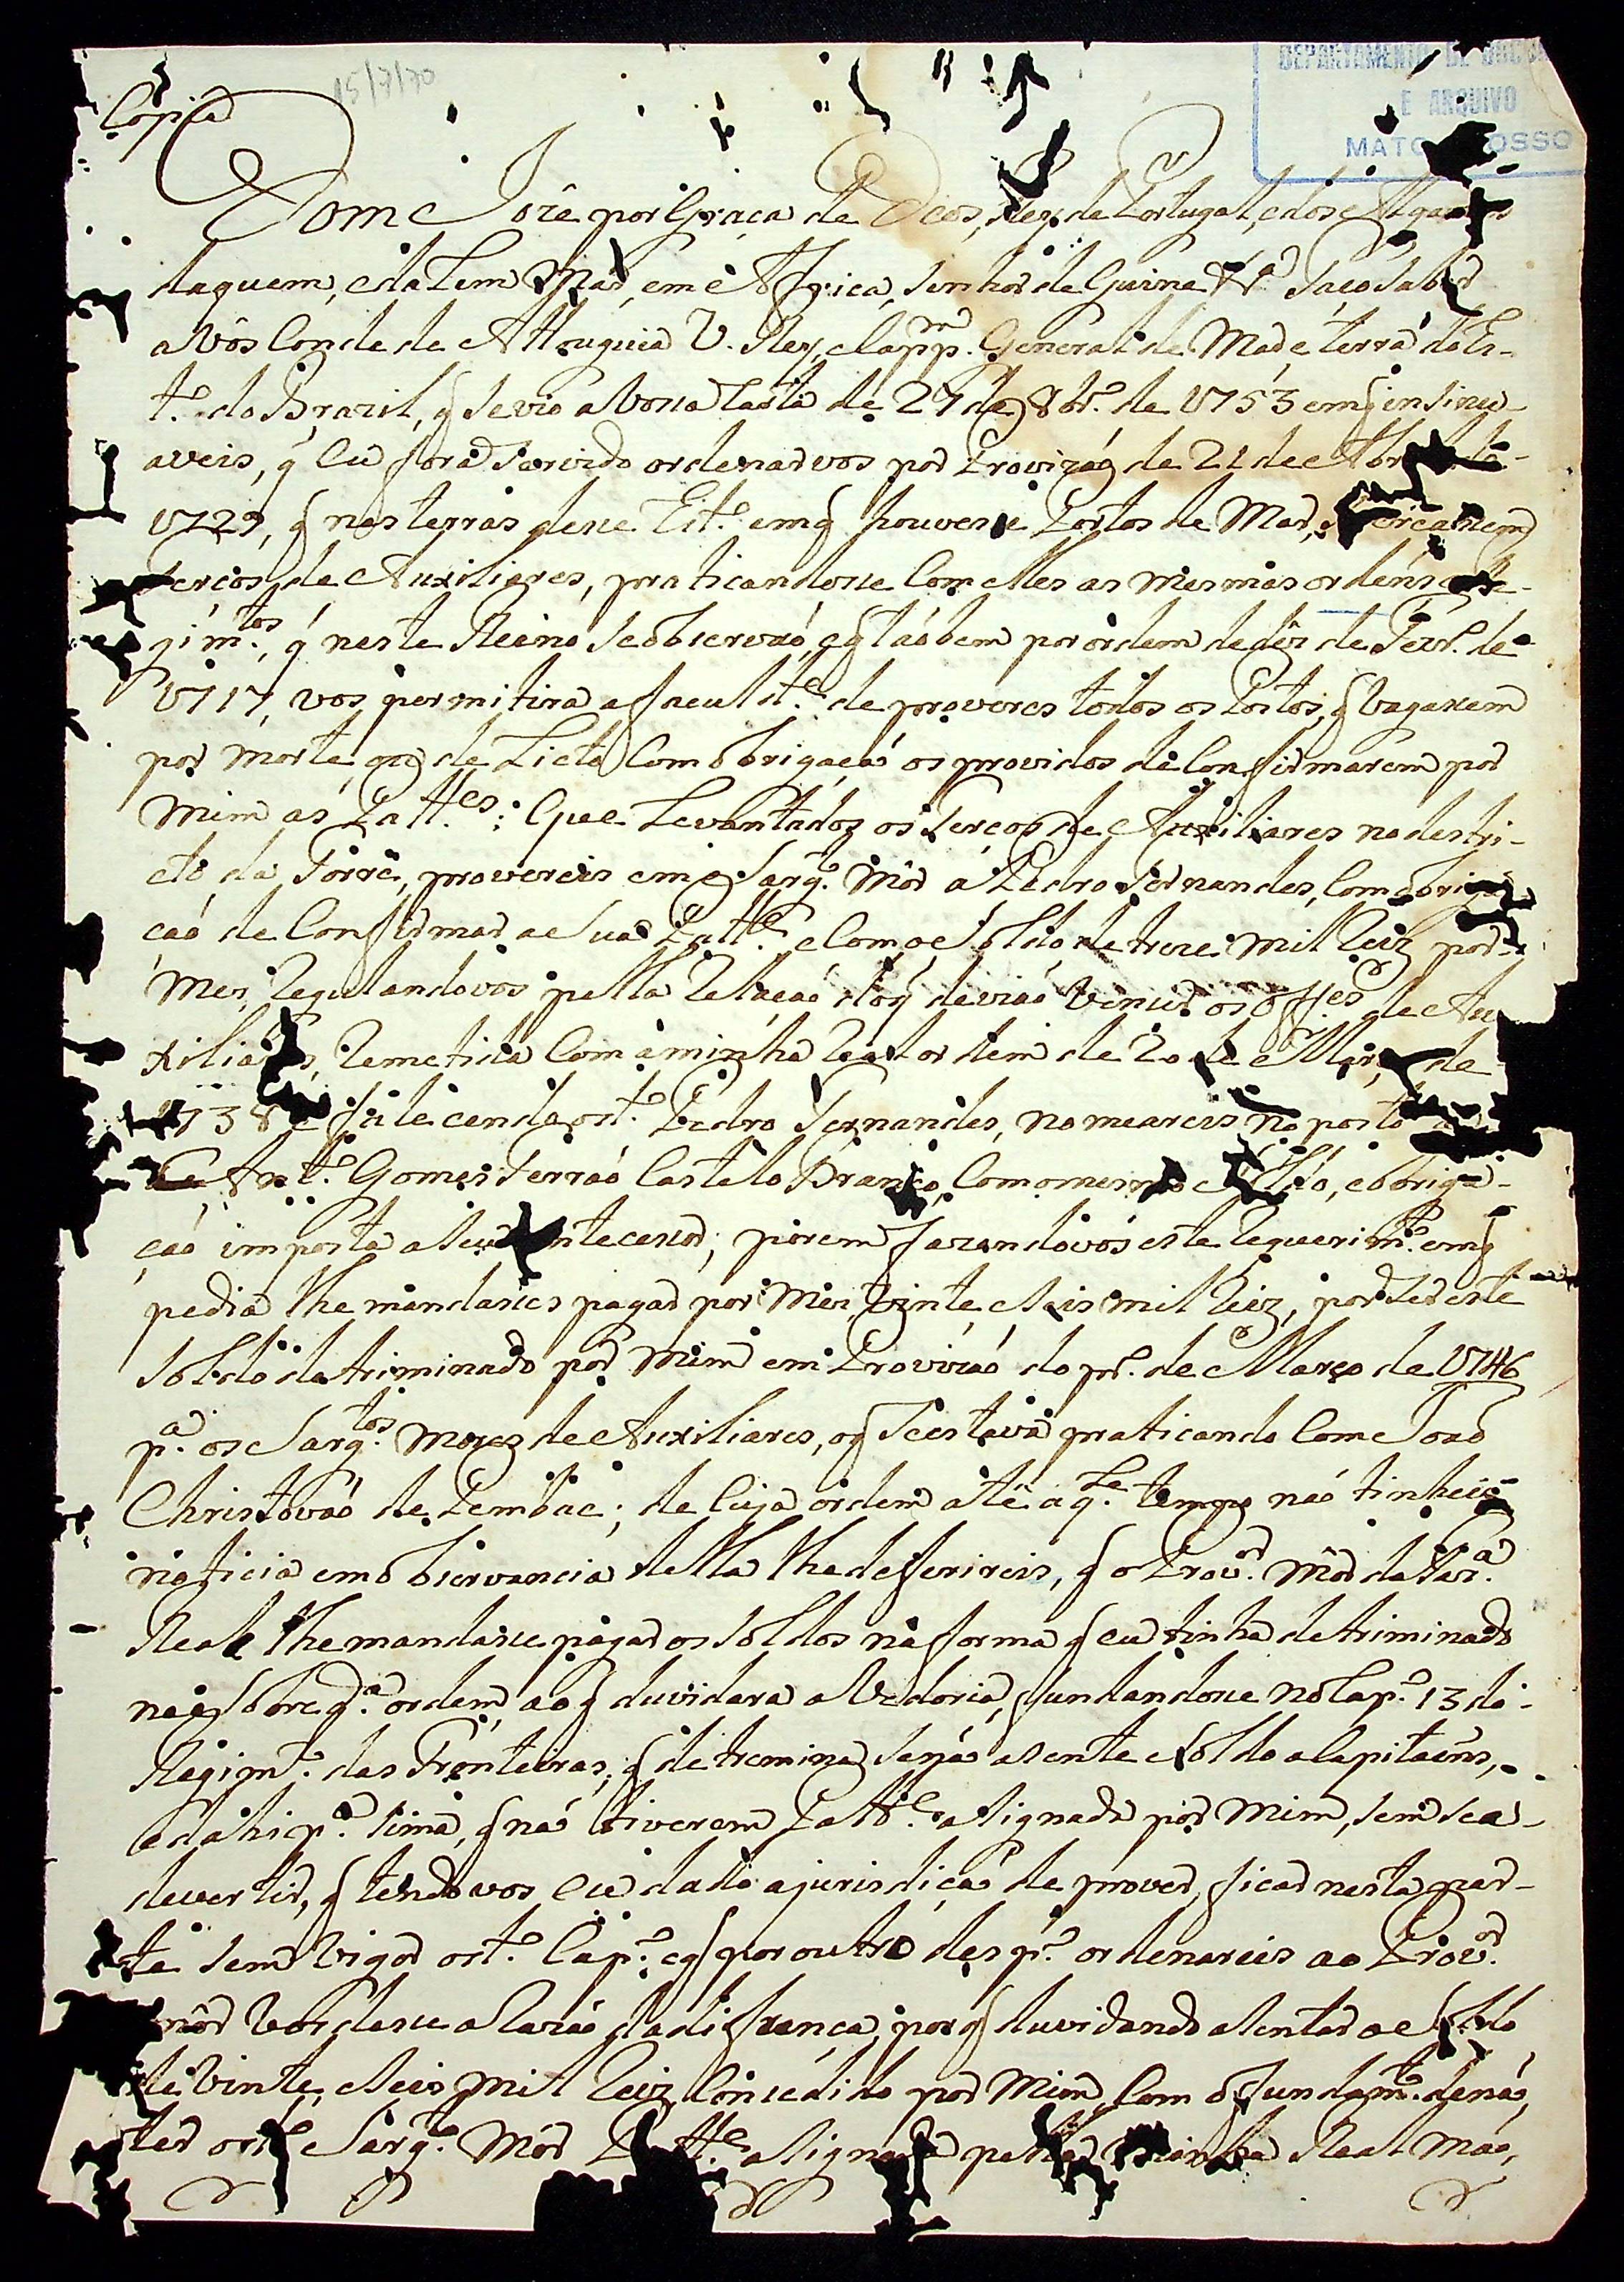 15/7/70
DEPARTAMENTO DE
E ARQUIVO
MATO OSSO
Copia
Dom Joze por Graça de Deos, Rey de Portugal, e dos Algarves
daquem, e dalem Mar, em Africa, Senhor de Guine &ª Faço saber
a Vos Conde de Attouguia V. Rey, e Cappm. General de Mar, e terra do Es-
t.º do Brazil, q̃ se vio a Vossa Carta de 27 de 8br.º de 1753 em q̃ insinu-
aveis, q̃ Eu fora Servido ordenarvos por Provizaõ de 21 de Abril de
1729, q̃ nas terras desse Est.º em q̃ houvesse Portos de Mar, se
terços de Auxiliares, praticandosse Com elles as mesmas ordens e Re-
gim.tos, q̃ neste Reino Se observaõ, e q̃ taõbem por ordem de dez de Fevr.º de
1717, vos permitira a facul.de de proveres todos os Postos, q̃ Vagassem
por morte, ou de Licto Com obrigaçaõ os providos de Confirmarem por
Mim as Patt.es: Que Levantados os Terços de Auxiliares no destri-
cto da Torre, provereis em Sarg.to Mór a Pedro Fernandes, Com obriga-
çaõ de Confirmar a Sua Patt.e e Com o Soldo de treze mil Reiz por
Mez, Regulandovos pella Relaçaõ do q̃ deviaõ Vencer os Off.es de Au-
xiliares, Remetida Com a minha Real ordem de 20 de Março de
1738 e falecendo est.e Pedro Fernandes, nomeareis no posto
Ant.º Gomes Ferraõ Castelo Branco, Com o mesmo Soldo, e obriga-
çaõ imposta a Seu Antecessor; porem fazendovos este Requerim.to em q̃
pedia lhe mandasses pagar por Mez, Vinte, e Seis mil Reiz, por Ser este
Soldo detriminado por Mim em Provizaõ do pr.º de Março de 1746
p.ª os Sarg.tos Mores de Auxiliares, o q̃ Se estava praticando Com Joaõ
Christovaõ de ; de Cuja ordem até aq.le tempo naõ tinheis
noticia em observancia della lhe defirireis, q̃ o Prov.or Mór da Faz.ª
Real lhe mandasse pagar os Soldos na forma q̃ eu tinha detriminado
na Sobre d.ª ordem, ao q̃ duvidara a Vedoria, fundandosse no Cap.º 13 do
Regim.to das Fronteiras, q̃ detremina Senaõ asente Soldo a Capitaẽns,
e dahi p.ª Sima, q̃ naõ tiverem Patt.e asignada por Mim, sem se a-
devertir, q̃ tendovos Eu dado a jurisdiçaõ de prover, ficar nesta par-
te Sem Vigor est.e Cap.º, e q̃ por outro desp.º ordenareis ao Prov.or
mór Vos desse a Razaõ da difrença, por q̃ duvidando asentar o Soldo
de Vinte, e Seis mil Reiz Concedido por Mim, Com o fundam.to de naõ
ter est.e Sarg.to Mór Patt.e asignada pella Minha Real Maõ,